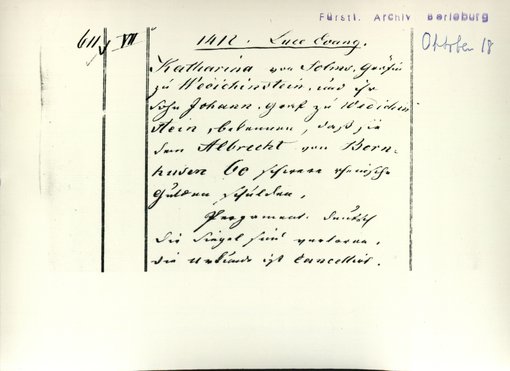 Fürstl. Archiv Berleburg
Oktober 18
611 VII 1412. Luce Evang.
Katharina von Solms, Gräfin
zu Wedichinstein, und ihr
Sohn Johann, Graf zu Wedichen
stein, bekennen, daß sie
dem Albrecht von Bern-
husen 60 schwere rheinische
Gulden schulden,
Pergament. deutsch
die Siegel sind verloren,
die Urkunde ist cancellirt.